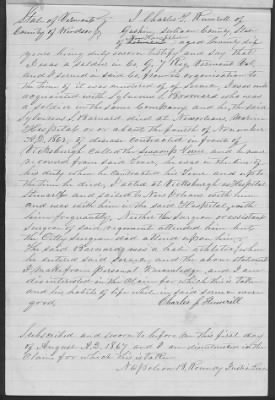 State of Vermont
County of Windsor
I Charles J. Burrill of
Goshen Sullivan County State
of New Hampshire aged twenty six
years being duly sworn depose and say that
I was a soldier in Co. G, 7 Reg Vermont Vol,
and I served in said Co. from its organization to
the time it was mustered of service, I was well
acquainted with Sylvanus S. Barnard who was
a soldier in the same Company and he, the said
Sylvanus S. Barnard died at New Orleans, Marine
Hospital on or about the fourth of November
A.D. 1862, of disease contracted in front of
Vicksburg called the Swamp Fever and he never
recovered from said Fever, he was in the line of
his duty when he contracted his Fever and up to
the time he died, I called at Vicksburg Hospital
and sailed to New Orleans with him
and was with him in the said Hospital, with
him frequently, Neither the Surgeon or assistant
Surgeon of said regiment attended him but
the City Surgeon did attend upon him
The said Barnard was a hale healthy when
he entered said Service, and the above statement
I make from personal Knowledge, and I am
disinterested in the Claim for which this is taken
and his habits of life while in said service were
good,
Charles J. Burrill
Subscribed and sworn to before me this first day
of August A.D. 1867 and I am disinterested in the
Claim for which this is taken